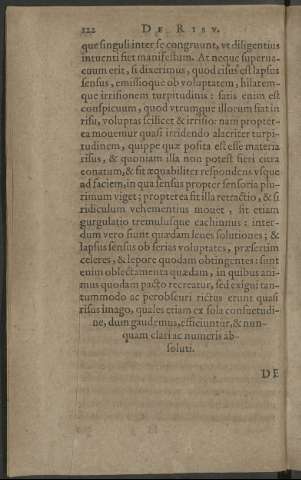 122 DE RISV.
que singuli inter se congruunt, vt diligentius
intuenti fiet manifestum. At neque superua-
cuum erit, si dixerimus, quod risus est lapsus
sensus, emissioque ob voluptatem, hilarem-
que irrisionem turpitudinis: satis enim est
conspicuum, quod vtrumque illorum fiat in
risu, voluptas scilicet & irrisio: nam propter-
ea mouemur quasi irridendo alacriter turpi-
tudinem, quippe quæ posita est esse materia
risus, & quoniam illa non potest fieri citra
conatum, & fit æquabiliter respondens vsque
ad faciem, in qua sensus propter sensoria plu-
rimum viget; propterea fit illa retractio, & si
ridiculum vehementius mouet, fit etiam
gurgulatio tremulusque cachinnus: inter-
dum vero fiunt quædam leues solutiones; &
lapsus sensus ob serias voluptates, præsertim
celeres, & lepore quodam obtingentes: sunt
enim oblectamenta quædam, in quibus ani-
mus quodam pacto recreatur, sed exigui tan-
tummodo ac perobscuri rictus erunt quasi
risus imago, quales etiam ex sola consuetudi-
ne, dum gaudemus, efficiuntur, & nun-
quam clari ac numeris ab-
soluti.
DE